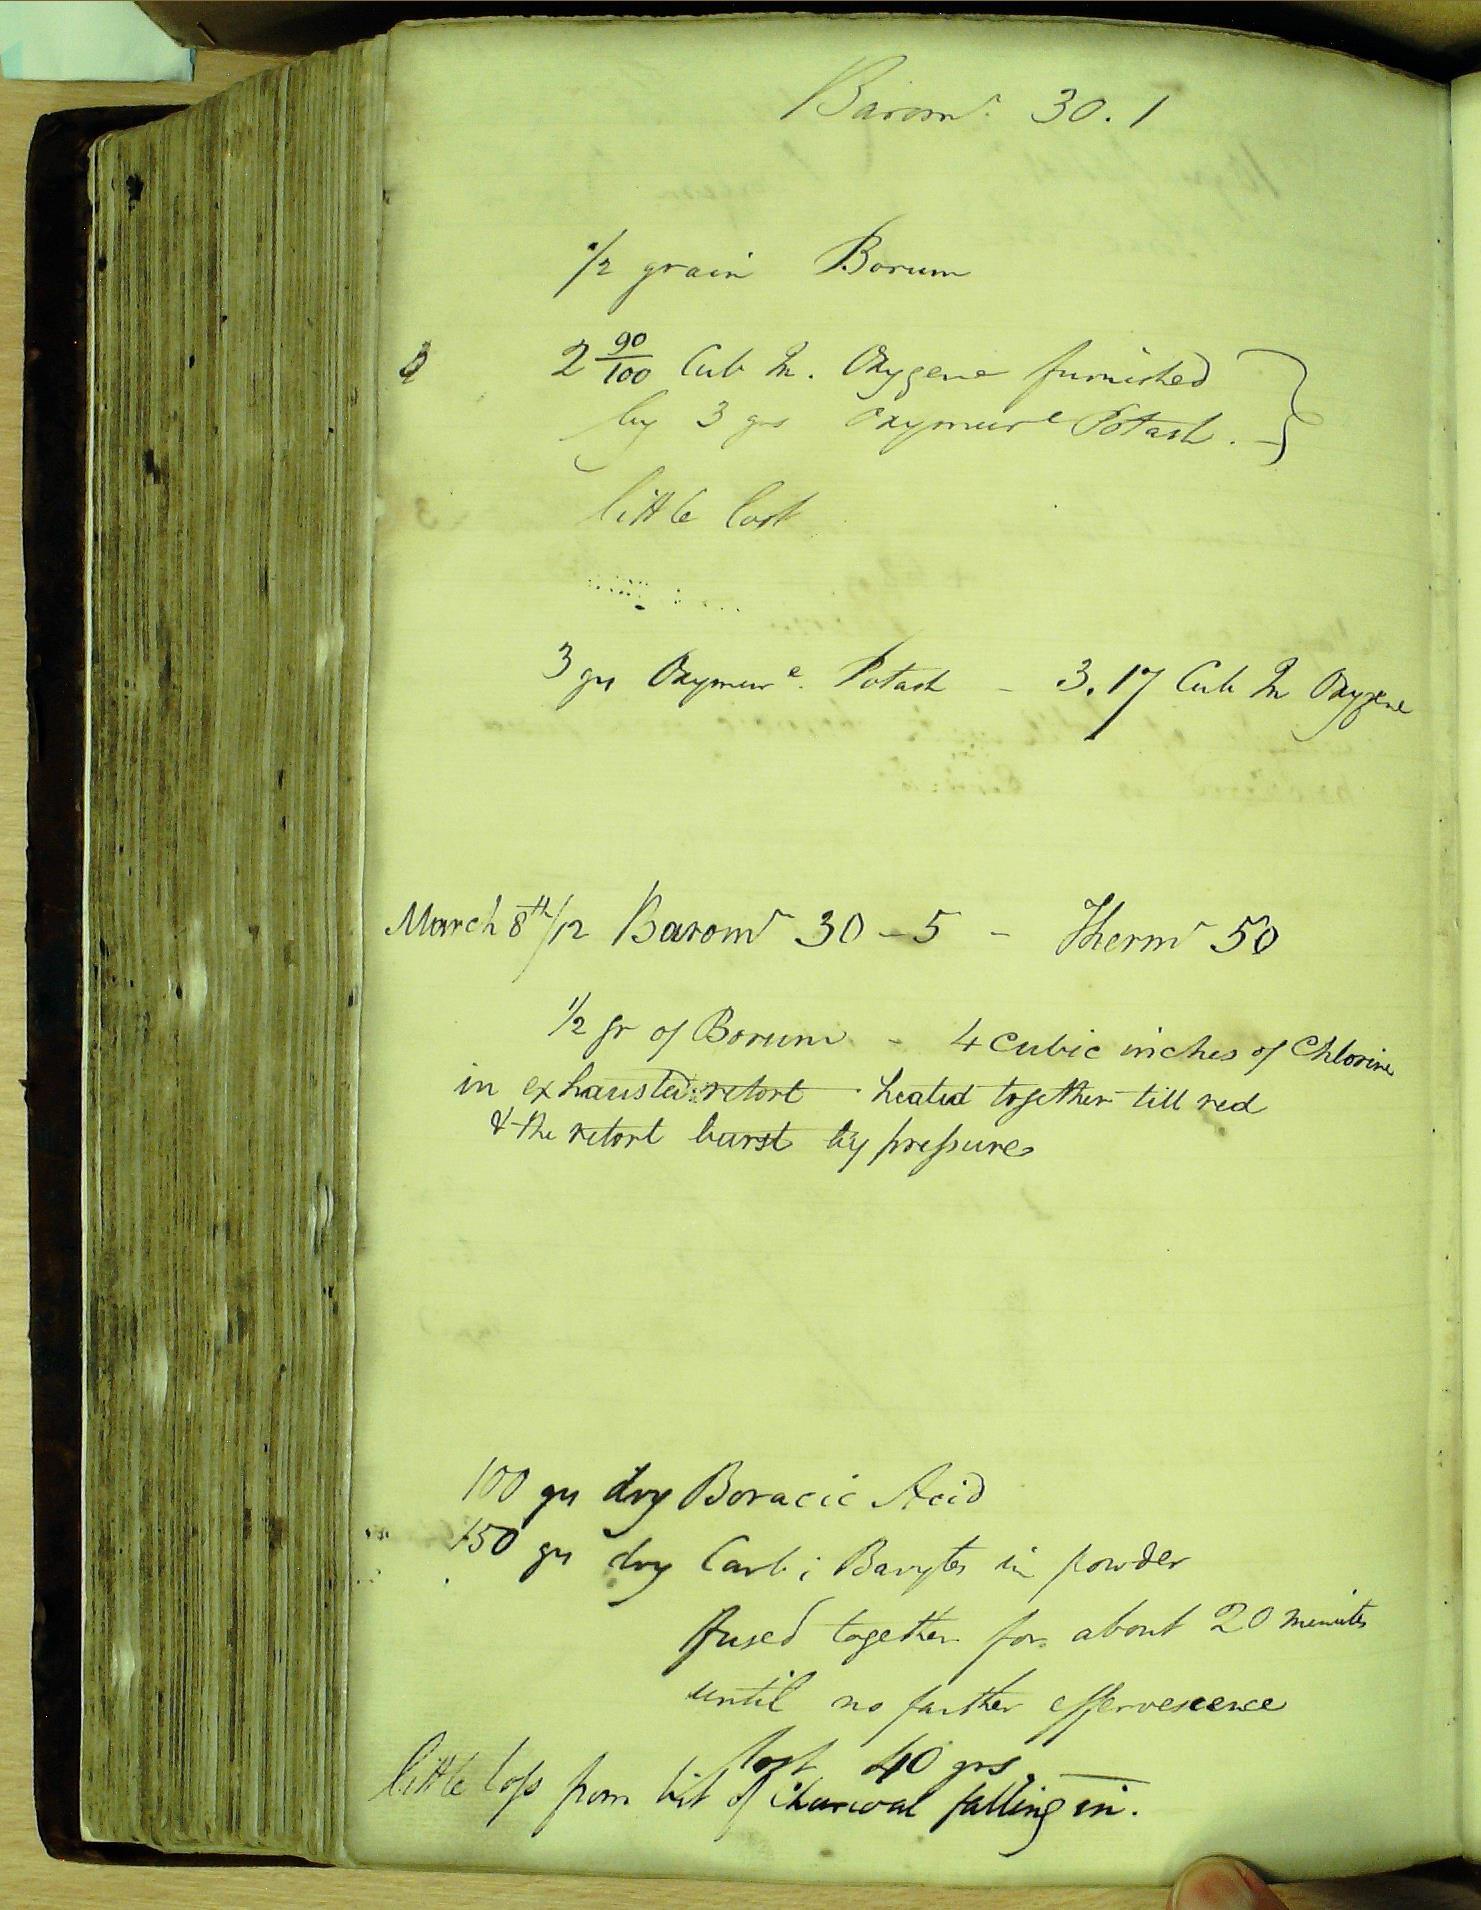 Barom^r. 30.1
1/2 grain Borum
2 90/100 Cub In. Oxygene furnished
by 3 grs Oxymur^e Potash.
little lost
3 grs Oxymur^e. Potash - 3.17 Cub In Oxygene
March 8th/12 Barom^r 30-5 - Therm^r 50
1/2 gr of Borum - 4 Cubic inches of Chlorine
in exhausted retort heated together till red
& the retort burst by pressure
100 grs dry Boracic Acid
150 grs dry Carb: Barytes in powder
fused together for about 20 minutes
until no farther effervescence
lost 40 grs. —
little loss from bit of Charcoal falling in.